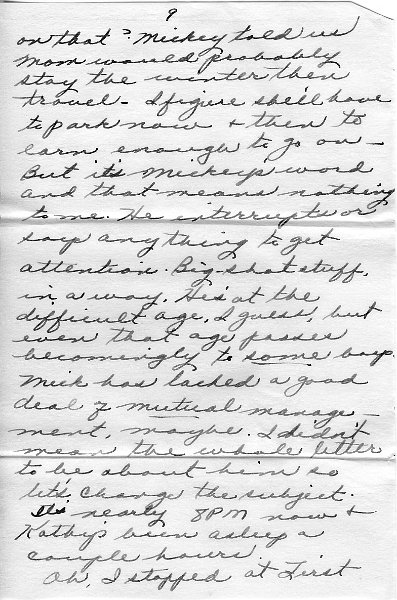 9
on that? Mickey told us
Mom would probably
stay the winter then
travel - I figure she'll have
to park now + then to
earn enough to go on -
But it's Mickey's word
and that means nothing
to me. He interrupts or
says anything to get
attention. Big-shot stuff,
in a way. He's at the
difficult age, I guess, but
even that age passes
becomingly to some boys.
Mick has lacked a good
deal of mutual manage-
ment, maybe. I didn't
mean the whole letter
to be about him so
let's, change the subject.
It's nearly 8PM now +
Kathy's been asleep a
couple hours.
Oh, I stopped at First